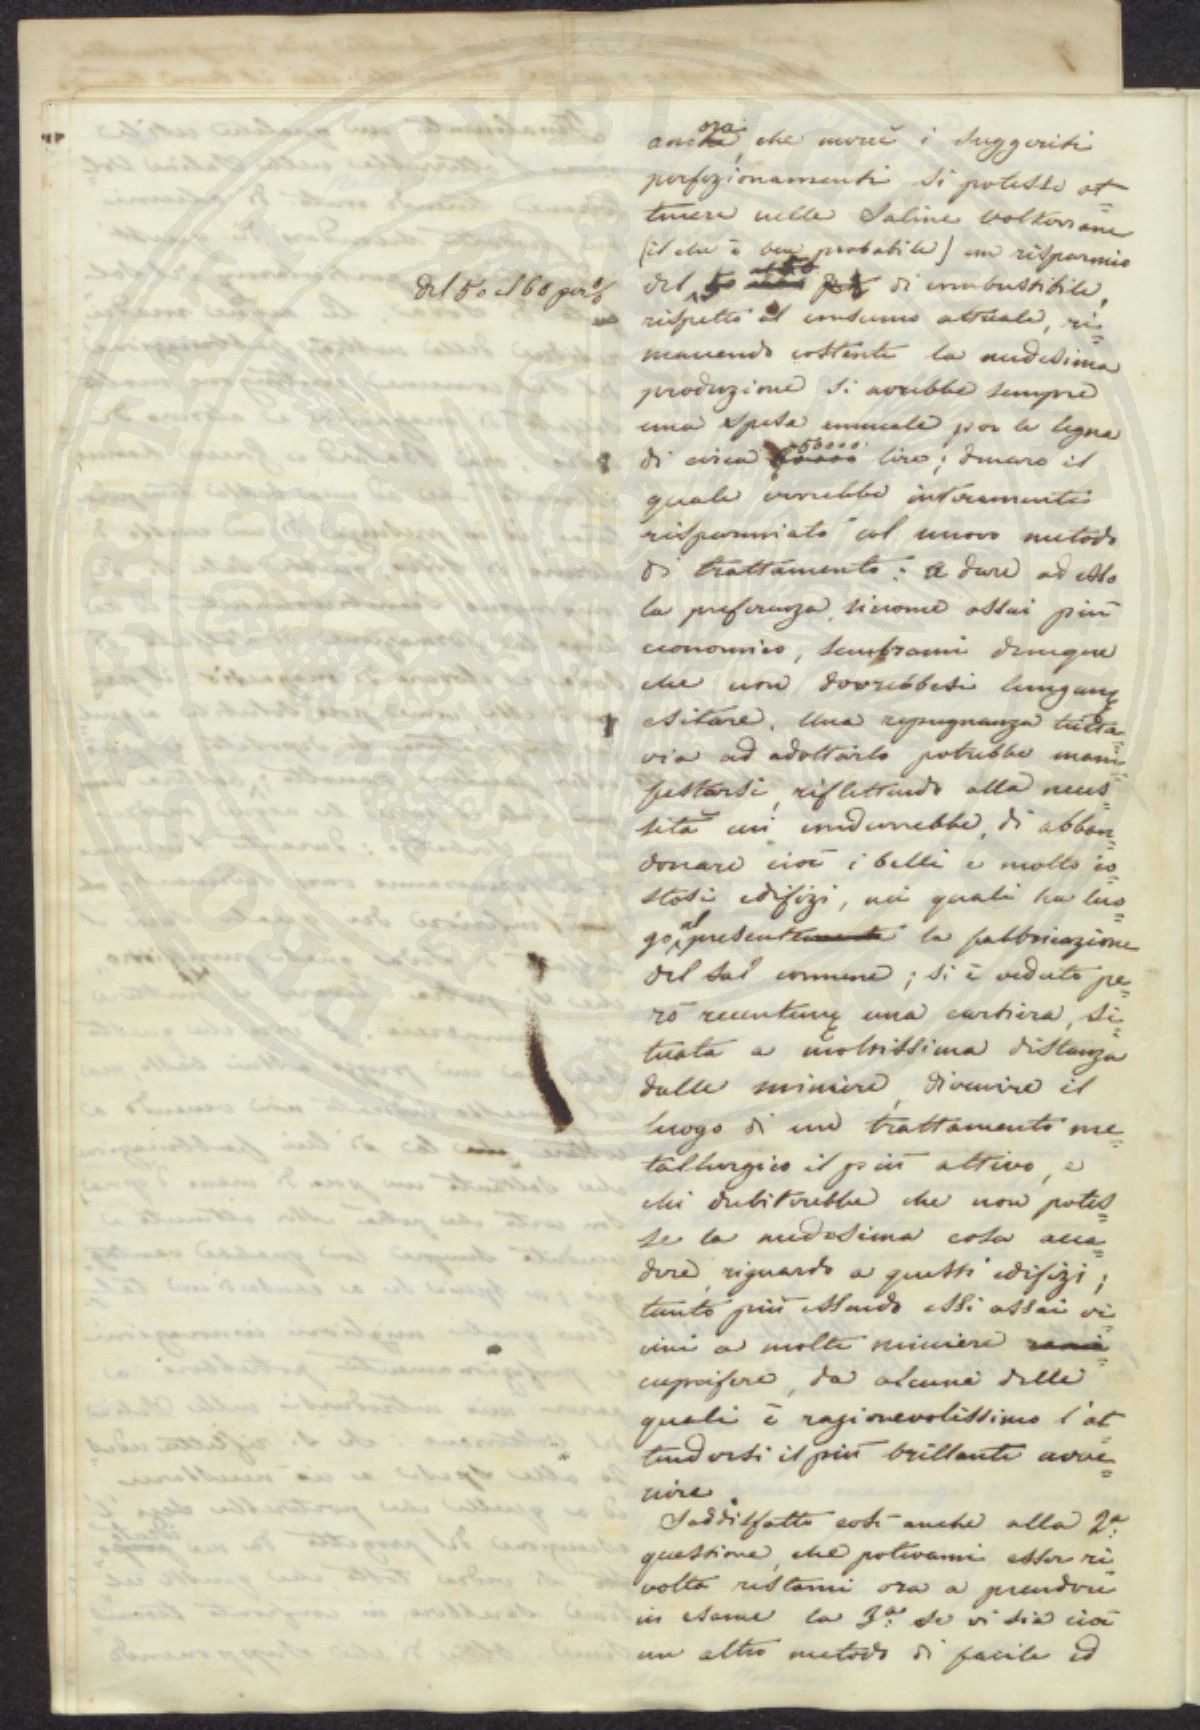 ancora, che mercè i suggeriti
perfezionamenti si potesse ot=
tenere nelle Saline Volterrane
(il che è ben probabile) un risparmio
del 50 al 60 per %
del di combustibile,
rispetto al consumo attuale, ri=
manendo costante la medesima
produzione si avrebbe sempre
una spesa annuale per le legna
di circa lire; denaro il
quale verrebbe interamente
risparmiato col nuovo metodo
di trattamento: a dare ad esso
la preferenza, siccome assai più
economico, sembrami dunque
che non dovrebbesi lungamᵗᵉ
esitare. Una repugnanza tutta=
via ad adottarlo potrebbe mani=
festarsi, riflettendo alla neces=
sità cui condurrebbe, di abban=
donare cioè i belli e molto co=
stosi edifizi, nei quali ha luo=
go al present la fabbricazione
del sal comune; si è veduto pe=
rò recentemᵗᵉ una cartiera, si=
tuata a moltissima distanza
dalle miniere, divenire il
luogo di un trattamento me=
tallurgico il più attivo, e
chi dubiterebbe che non potes=
se la medesima cosa acca=
dere, riguardo a questi edifizi;
tanto più essendo essi assai vi=
cini a molte miniere
cuprifere, da alcune delle
quali è ragionevolissimo l'at=
tendersi il più brillante avve=
nire.
Soddisfatto così anche alla 2ª
questione, che potevami esser ri=
volta restami ora a prendere
in esame la 3ª: se vi sia cioè
un altro metodo di facile ed